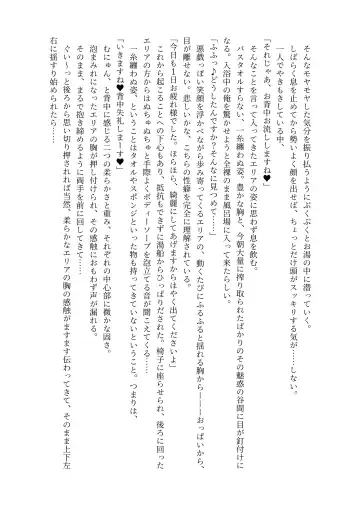 そんなモヤモヤした気分を振り払うようにぶくぶくとお湯の中に潜っていく。
しばらく息を止めてから勢いよく顔を出せば、ちょっとだけ頭がスッキリする気が……しない。
一人でやきもきしながらお湯の中から顔を出した瞬間
「それじゃあ、お背中お流ししますね♥」
そんなことを言って入ってきたエリアの姿に思わず息を飲む。
バスタオルすらない、一糸纏わぬ姿。豊かな胸と、今朝大量に搾り取られたばかりのその魅惑の谷間に目が釘付けに
なる。入浴中の俺を驚かせようと全裸のまま風呂場に入って来たらしい。
「ふふっ♪どうしたんですか？そんなに見つめて……」
悪戯っぽい笑顔を浮かべながら歩み寄ってくるエリアの、動くたびにふるふると揺れる胸から―――おっぱいから、
目が離せない。悲しいかな、こちらの性癖を完全に理解されている。
「今日も1日お疲れ様でした。ほらほら、綺麗にしてあげますからはやく出てくださいよ」
これから起こることへの下心もあり、抵抗もできずに湯船から引っぱりだされた。椅子に座らせられ、後ろに回った
エリアの方からはぬちゃぬちゅと手際よくボディーソープを泡立てる音が聞こえてくる……
一糸纏わぬ姿、ということはタオルやスポンジといった物も持ってきていないということ。つまりは、
「いきますね♥背中失礼しまーす♥」
むにゅん、と背中に感じる二つの柔らかさと重み、それぞれの中心部に微かな固さ。
泡まみれになったエリアの胸が押し付けられ、その感触におもわず声が漏れる。
そのまま、まるで抱き締めるように両手を前に回されて……
ぐい～っと後ろから思い切り押されれば当然、柔らかなエリアの胸の感触がますます伝わってきて、そのまま上下左
右に揺すり始められたら……